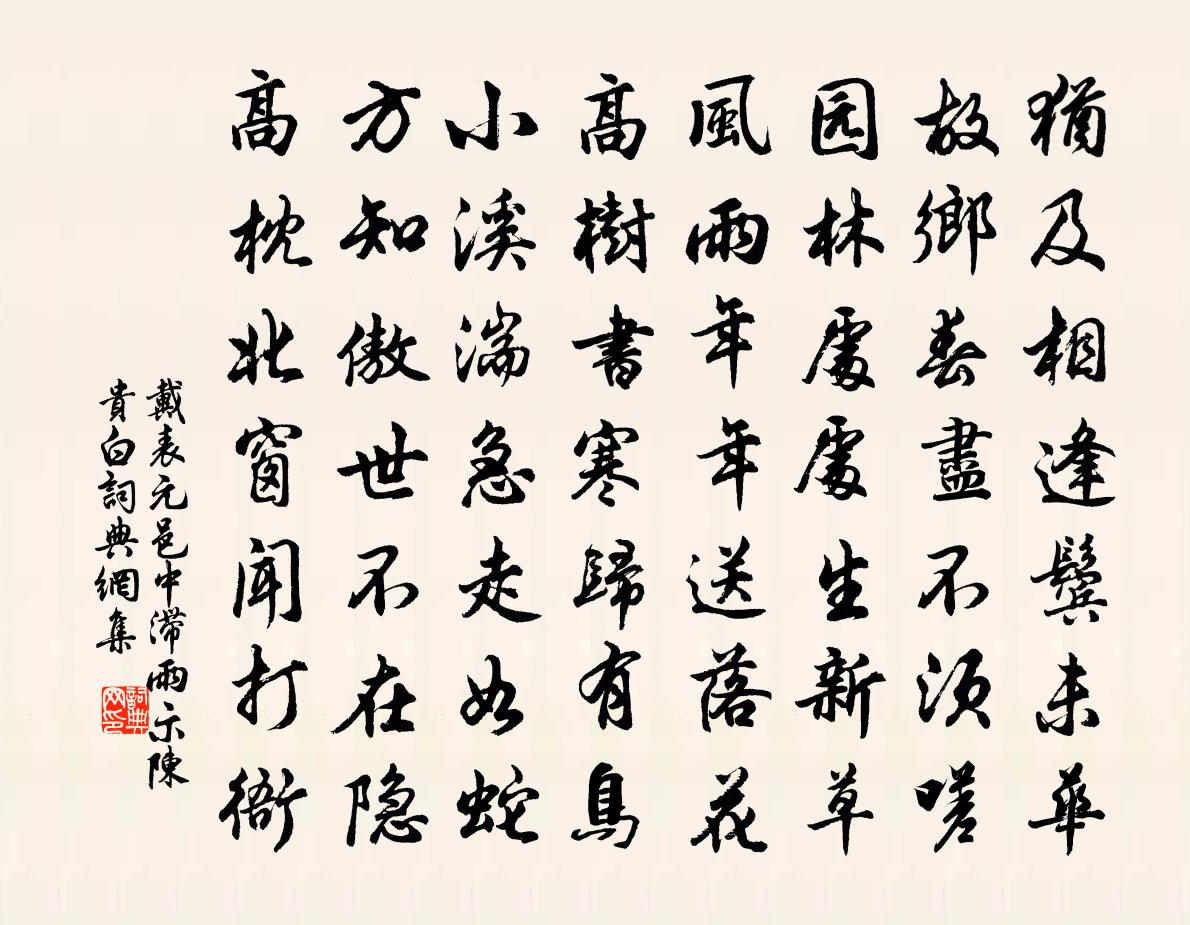 猶及相逢鬢未華
故鄉春盡不須嗟
园林處處生新草
風雨年年送落花
高樹書寒歸有鳥
小溪湍急走如蛇
方知傲世不在隐
高枕北窗聞打衙
戴表元邑中滯雨示陳
貴白詞典網集
詞典
网印